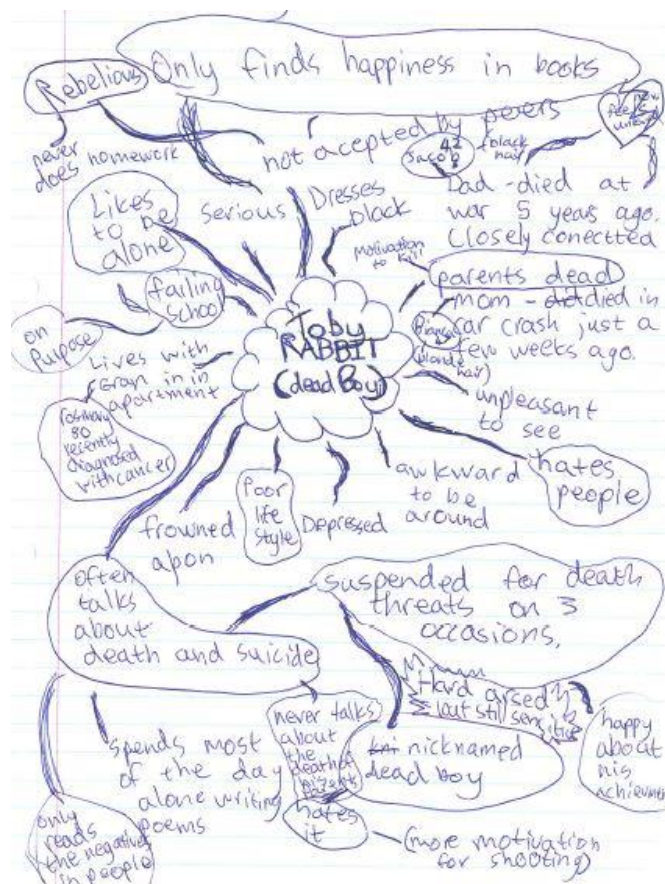 Only finds happiness in books
Rebelious
never
does homework
not acepted by peers
Jacob 42
black
hair
feels
Likes
to be
alone
serious
Dresses
black
Dad - died at
war 5 years ago.
Closely conectted
Motivation
to kill
parents dead
failing
school
on
Purpose
Toby
RABBIT
(dead Boy)
mom - died in
car crash just a
few weeks ago.
Bianca
(blonde
hair)
Lives with
Gran in in
apartment
rosmary
80
recently
diagnosed
with cancer
unpleasant
to see
hates
people
awkward
to be
around
Depressed
Poor
life
style
frowned
apon
often
talks
about
death and suicide
suspended for death
threats on 3
occasions,
Hard arsed
but still sensitive
happy
about
his
achievment
never talks
about
the
death of
his
parents
nicknamed
dead boy
hates
it
(more motivation
for shooting)
spends most
of the day
alone writing
poems
only
reads
the negatives
in people